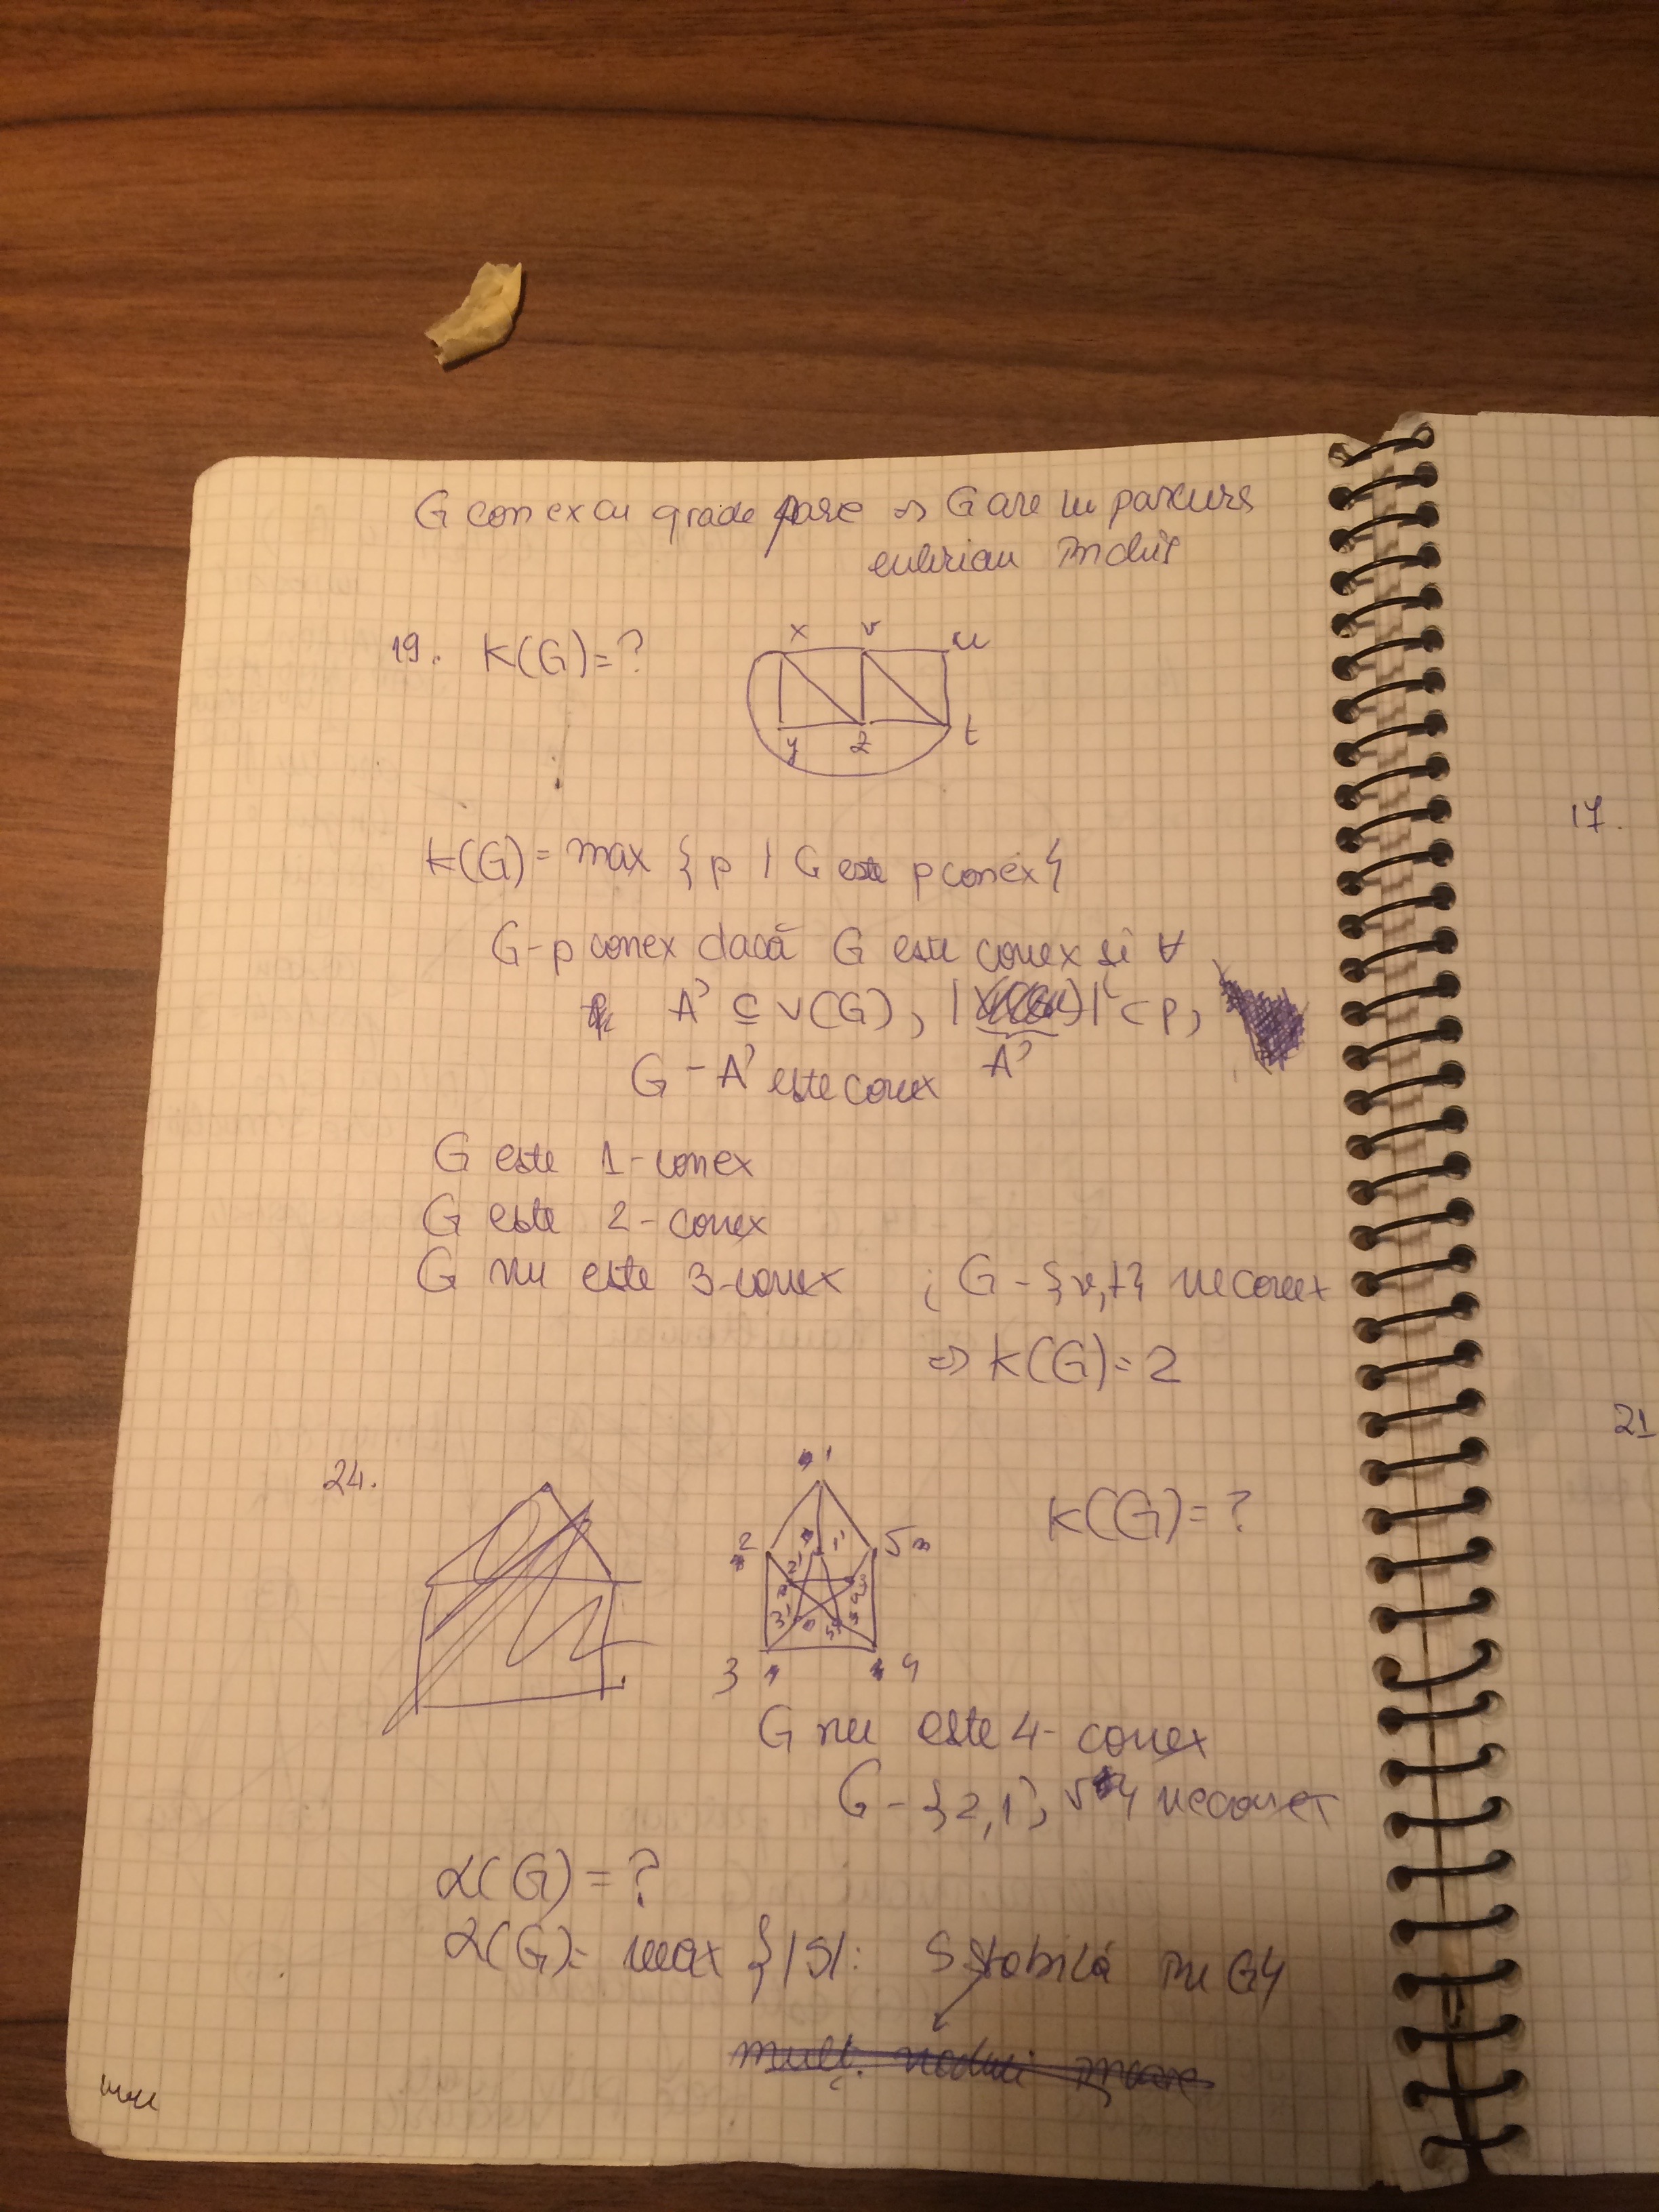 G conex cu grade pare => G are un parcurs
eulerian închis
19. K(G)=?
x v u
y z t
K(G) = max {p | G este p conex}
G-p conex dacă G este conex și ∀
A' ⊆ V(G), | | < p,
A'
G - A' este conex
G este 1-conex
G este 2-conex
G nu este 3-conex ; G-{v,t} neconex
=> K(G)=2
24.
K(G)=?
1
2 1' 5
2'
3'
3 4
G nu este 4-conex
G-{2,1', 5} neconex
α(G) = ?
α(G)= max {|S|: S stabilă în G}
17.
21